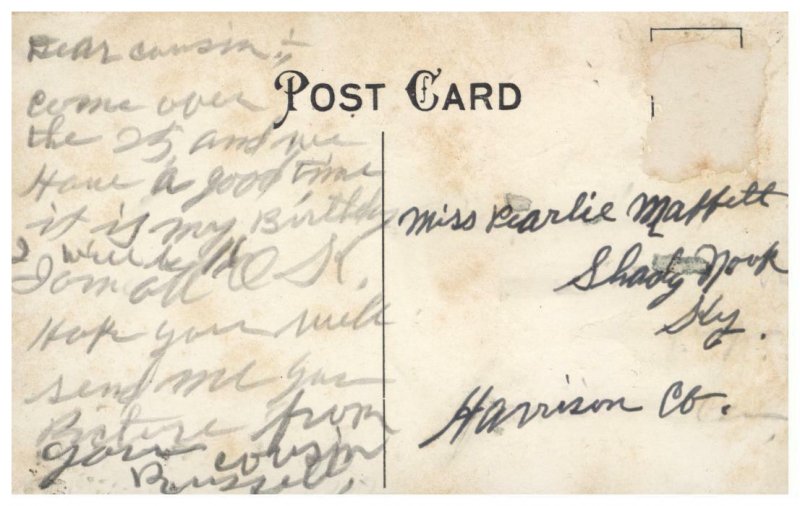 Dear cousin
come over
the 25 and we
Have a good time
it is my Birthdy
I will be
I am all O K.
Hope you will
send me your
Picture from
your cousin
Russell,
POST CARD
Miss Pearlie Maffett
Shady Nook
Ky.
Harrison Co.